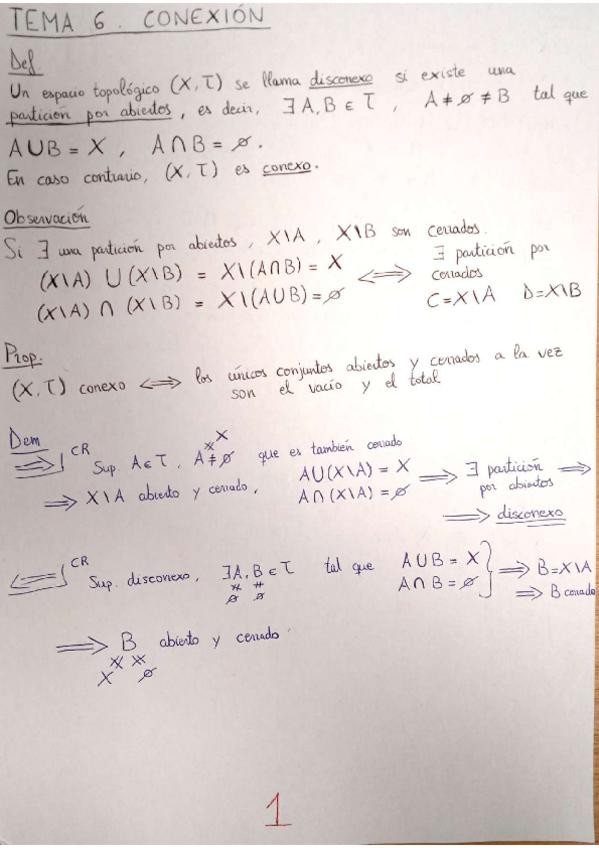 TEMA 6. CONEXIÓN
Def
Un espacio topológico (X, τ) se llama disconexo si existe una
partición por abiertos, es decir, ∃ A, B ∈ τ , A ≠ ∅ ≠ B tal que
A ∪ B = X , A ∩ B = ∅.
En caso contrario, (X, τ) es conexo.
Observación
Si ∃ una partición por abiertos , X\A , X\B son cerrados.
(X\A) ∪ (X\B) = X\(A∩B) = X ⟺ ∃ partición por cerrados
(X\A) ∩ (X\B) = X\(A∪B) = ∅ C = X\A D = X\B
Prop.
(X, τ) conexo ⟺ los únicos conjuntos abiertos y cerrados a la vez
son el vacío y el total
Dem
⟹ CR Sup. A ∈ τ , X ≠ A ≠ ∅ que es también cerrado
⟹ X\A abierto y cerrado, A ∪ (X\A) = X ⟹ ∃ partición ⟹
A ∩ (X\A) = ∅ por abiertos
⟹ disconexo
⟸ CR Sup. disconexo, ∃ A, B ∈ τ tal que A ∪ B = X ⟹ B = X\A
≠ ≠ A ∩ B = ∅ ⟹ B cerrado
∅ ∅
⟹ B abierto y cerrado
≠ ≠
X ∅
1